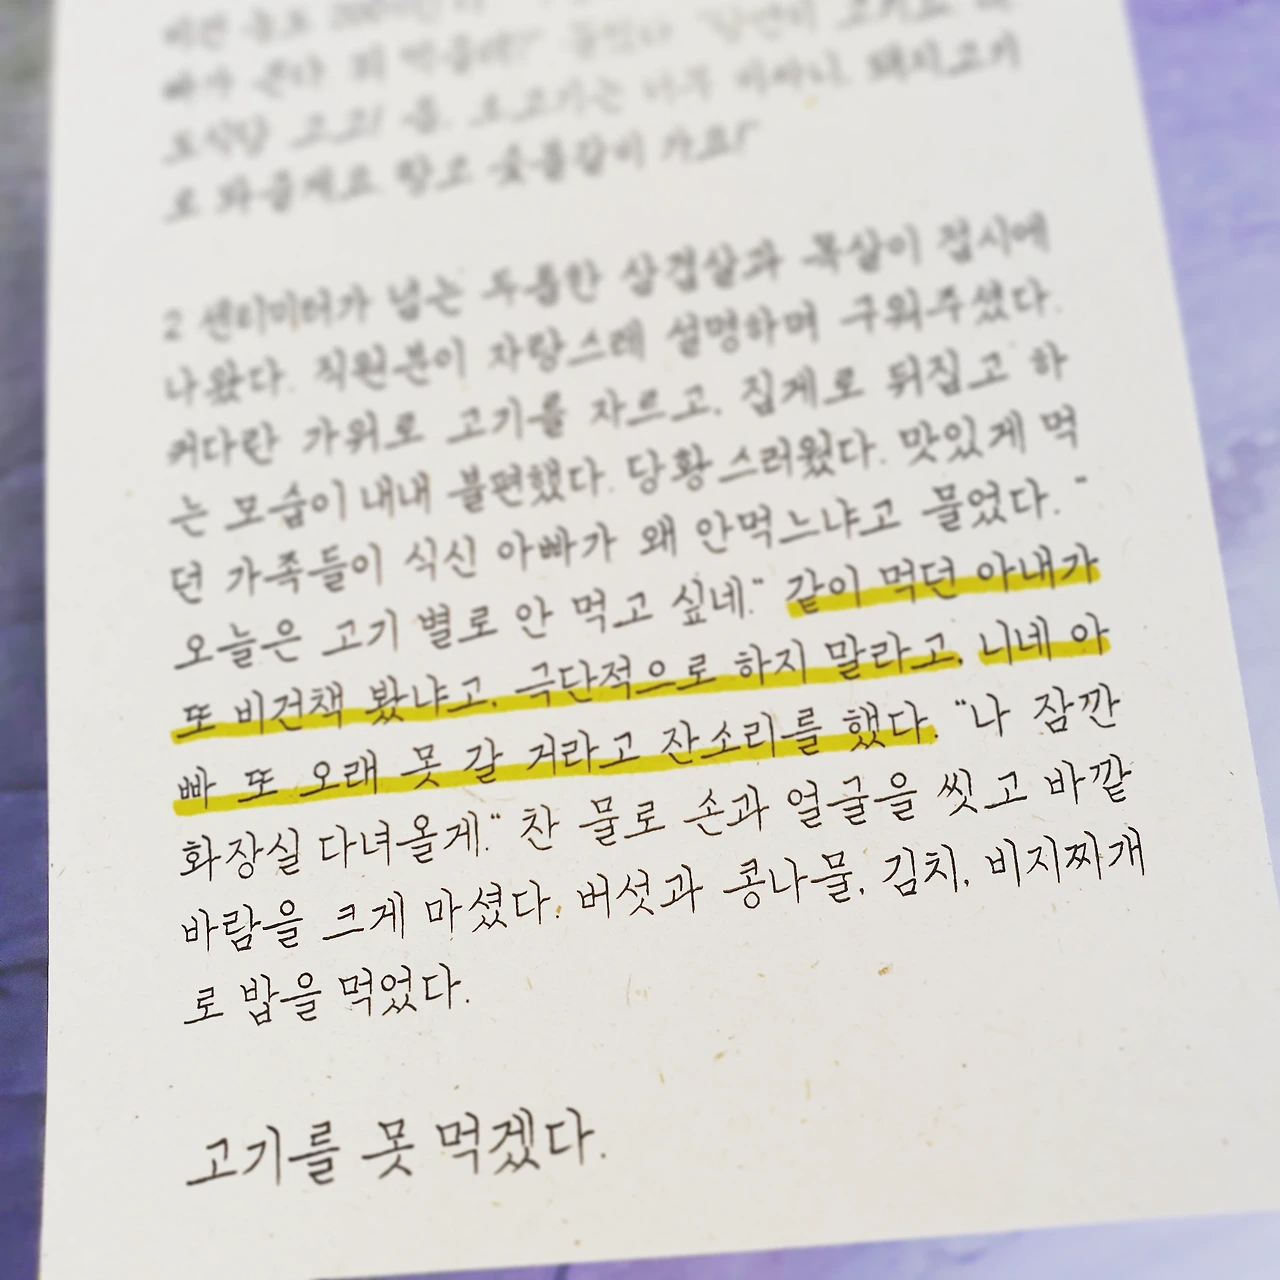 도식당 고고! 음, 소고기는 너무 비싸니, 돼지고기
로 파음게요 팡고 숯불갈비 가요!"
2 센티미터가 넘는 두툼한 삼겹살과 목살이 접시에
나왔다. 직원분이 자랑스레 설명하며 구워주셨다.
커다란 가위로 고기를 자르고, 집게로 뒤집고 하
는 모습이 내내 불편했다. 당황스러웠다. 맛있게 먹
던 가족들이 식신 아빠가 왜 안먹느냐고 물었다. "
오늘은 고기 별로 안 먹고 싶네." 같이 먹던 아내가
또 비건책 봤냐고, 극단적으로 하지 말라고, 니네 아
빠 또 오래 못 갈 거라고 잔소리를 했다. "나 잠깐
화장실 다녀올게." 찬 물로 손과 얼굴을 씻고 바깥
바람을 크게 마셨다. 버섯과 콩나물, 김치, 비지찌개
로 밥을 먹었다.
고기를 못 먹겠다.